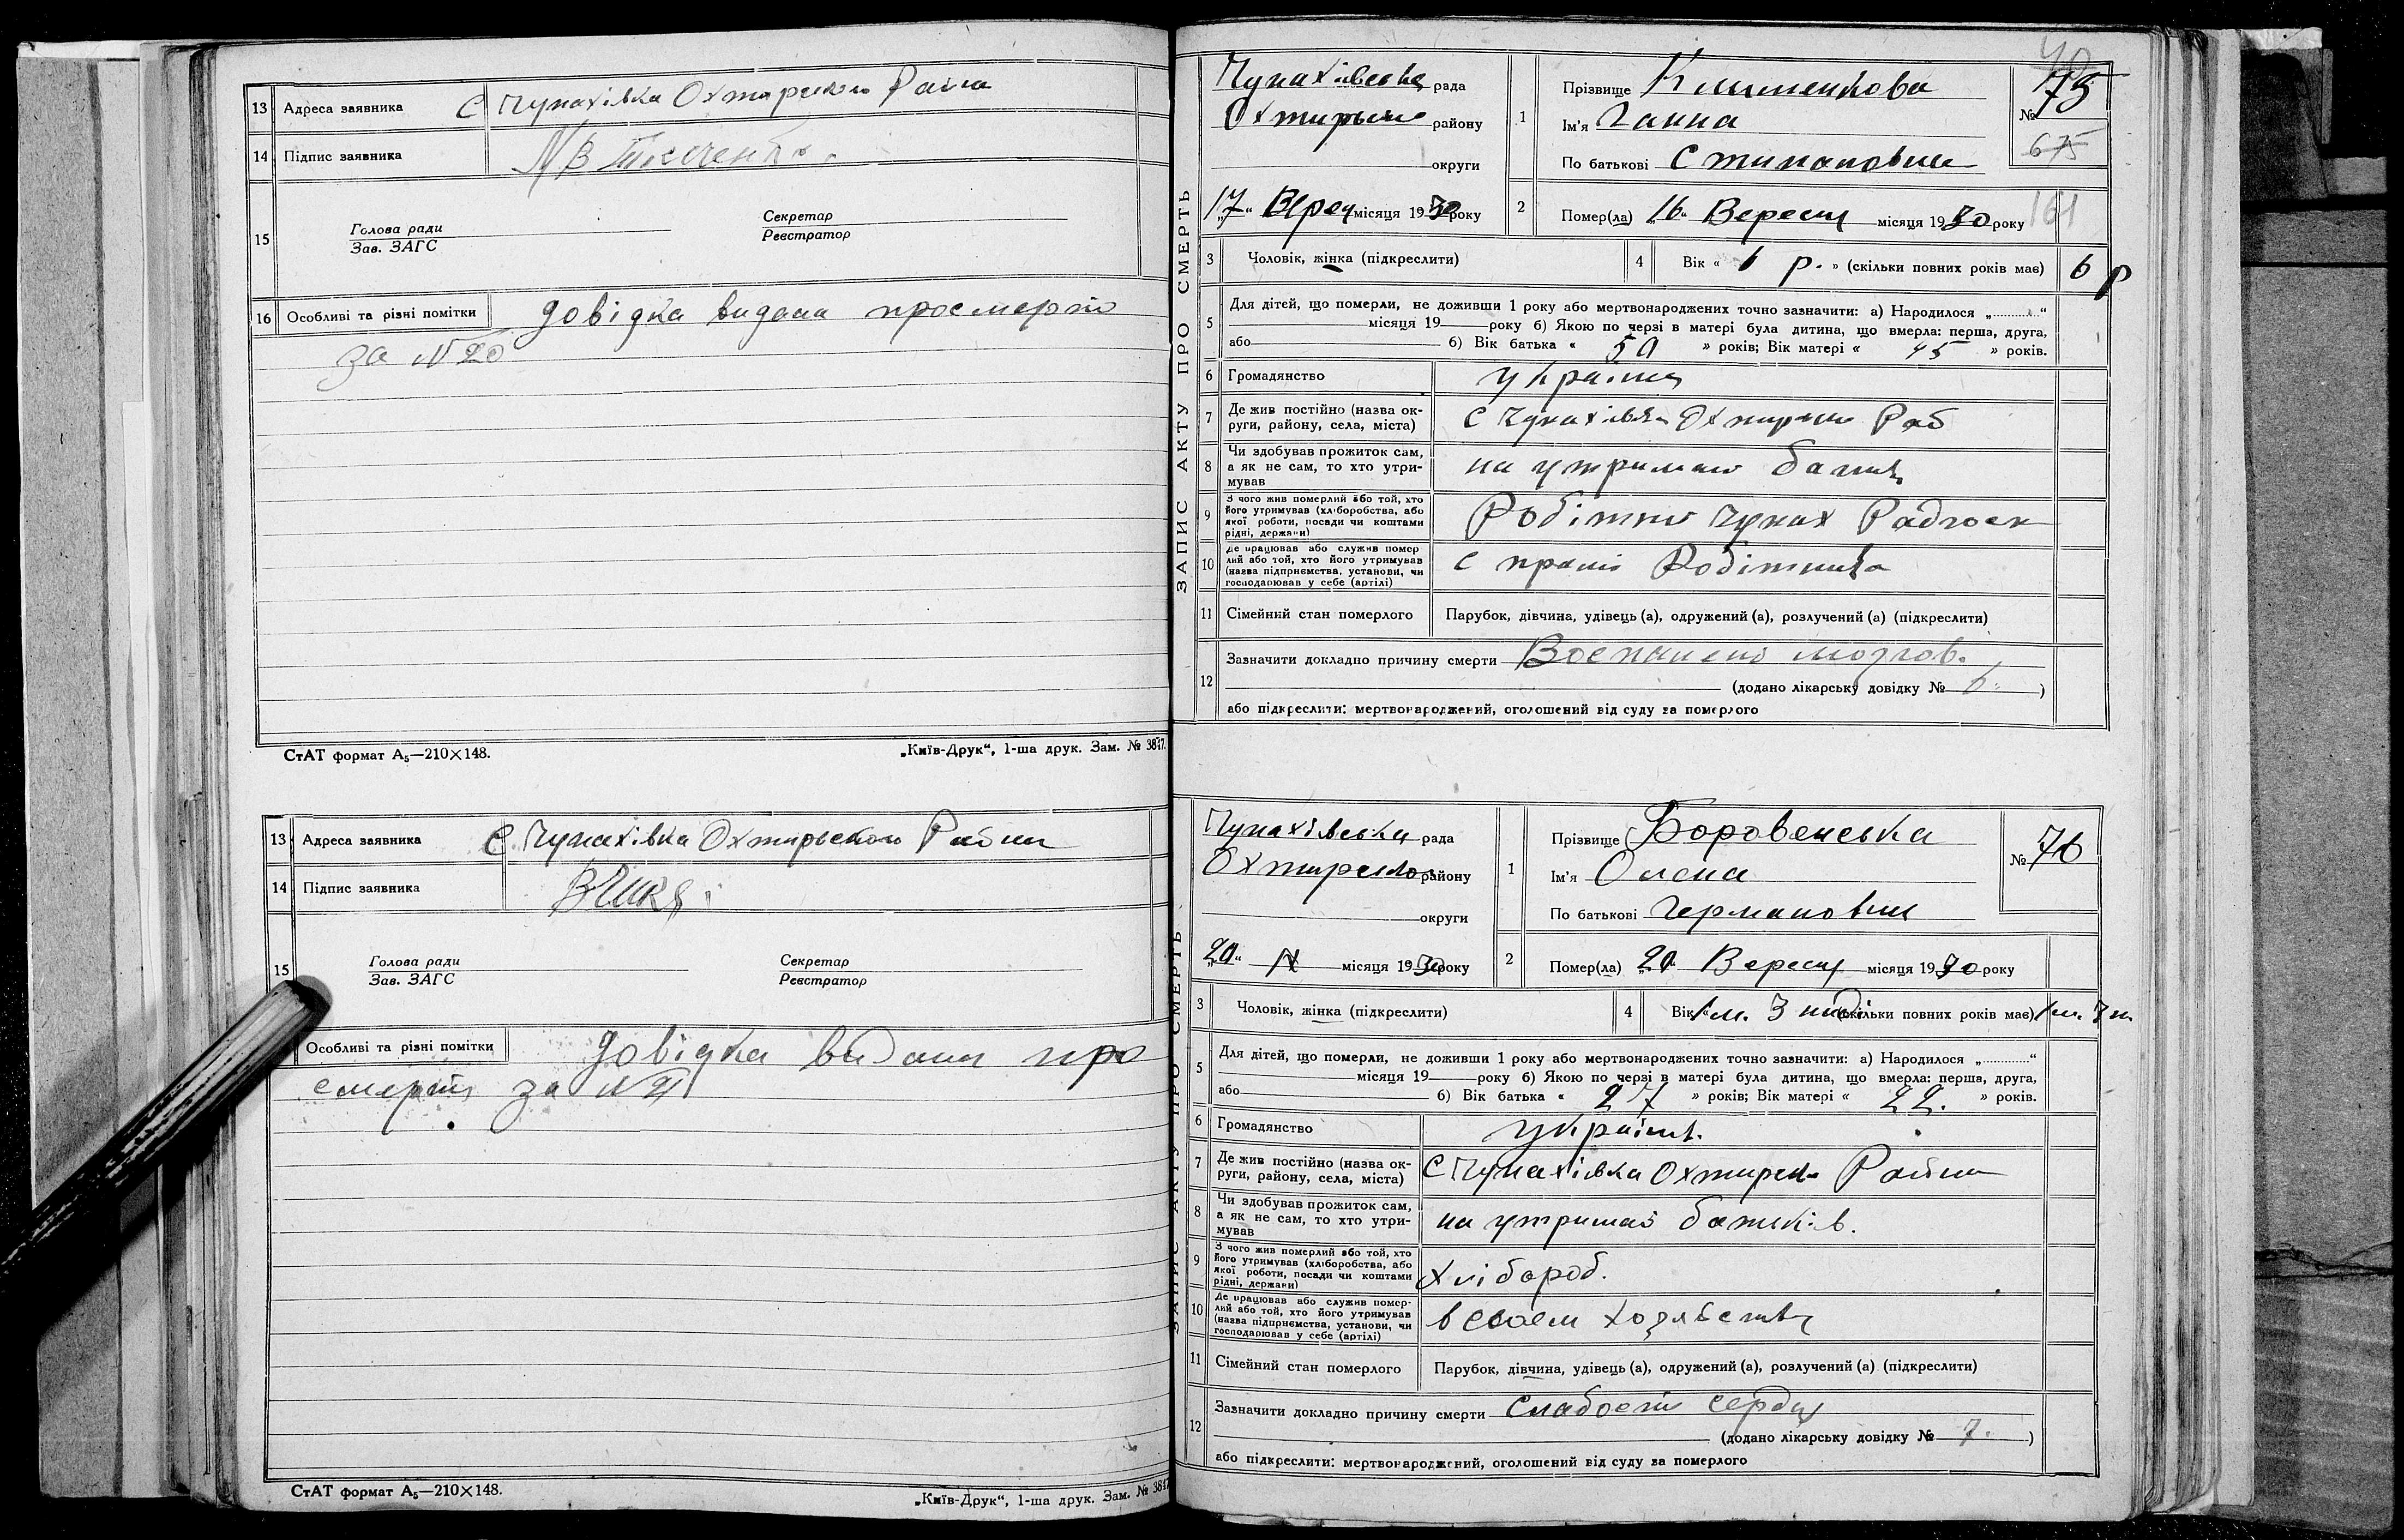 13 Адреса заявника С Чупахівка Охтирського Райна
14 Підпис заявника
15 Голова ради
Зав. ЗАГС
Секретар
Реєстратор
16 Особливі та різні помітки довідка видана про смерть
за № 20
СтАТ формат А₅—210×148.
„Київ-Друк“, 1-ша друк. Зам. № 3847.
13 Адреса заявника С. Чупахівка Охтирського Району
14 Підпис заявника
15 Голова ради
Зав. ЗАГС
Секретар
Реєстратор
Особливі та різні помітки довідка видана про
смерть за № 21
СтАТ формат А₅—210×148.
„Київ-Друк“, 1-ша друк. Зам. № 3847
ЗАПИС АКТУ ПРО СМЕРТЬ
Чупахівська рада
Охтирськ району
округи
„17“ Верес місяця 1930 року
1 Прізвище Клименкова
Ім'я Ганна
По батькові Стипановна
№ 75
675
2 Помер(ла) „16“ Вересня місяця 1930 року
161
3 Чоловік, жінка (підкреслити)
4 Вік « 6 р. » (скільки повних років має) 6 р
5 Для дітей, що померли, не доживши 1 року або мертвонароджених точно зазначити: а) Народилося „............“
місяця 19 року б) Якою по черзі в матері була дитина, що вмерла: перша, друга,
або 6) Вік батька « 50 » років; Вік матері « 45 » років.
6 Громадянство україн
7 Де жив постійно (назва округи, району, села, міста) С Чупахівка Охтирськ Рай
8 Чи здобував прожиток сам, а як не сам, то хто утримував на утриман батька
9 З чого жив померлий або той, хто його утримував (хліборобства, або якої роботи, посади чи коштами рідні, держави) Робітник Чупах Радгосп
10 Де працював або служив померлий або той, хто його утримував (назва підприємства, установи, чи господарював у себе (артілі) с праці Робітника
11 Сімейний стан померлого Парубок, дівчина, удівець (а), одружений (а), розлучений (а) (підкреслити)
12 Зазначити докладно причину смерти Воспалено мозгов.
(додано лікарську довідку № 6. )
або підкреслити: мертвонароджений, оголошений від суду за померлого
ЗАПИС АКТУ ПРО СМЕРТЬ
Чупахівська рада
Охтирсько району
округи
„20“ IX місяця 1930 року
1 Прізвище Боровенська
Ім'я Олена
По батькові Германовна
№ 76
2 Помер(ла) „20“ Вересня місяця 1930 року
3 Чоловік, жінка (підкреслити)
4 Вік « 1 м. 3 (скільки повних років має)
5 Для дітей, що померли, не доживши 1 року або мертвонароджених точно зазначити: а) Народилося „............“
місяця 19 року б) Якою по черзі в матері була дитина, що вмерла: перша, друга,
або 6) Вік батька « 27 » років; Вік матері « 22. » років.
6 Громадянство україн.
7 Де жив постійно (назва округи, району, села, міста) С Чупахівка Охтирськ Району
8 Чи здобував прожиток сам, а як не сам, то хто утримував на утриман батьків.
9 З чого жив померлий або той, хто його утримував (хліборобства, або якої роботи, посади чи коштами рідні, держави) Хлібороб.
10 Де працював або служив померлий або той, хто його утримував (назва підприємства, установи, чи господарював у себе (артілі) в своем хозяйству
11 Сімейний стан померлого Парубок, дівчина, удівець (а), одружений (а), розлучений (а) (підкреслити)
12 Зазначити докладно причину смерти Слабость сердця
(додано лікарську довідку № 7. )
або підкреслити: мертвонароджений, оголошений від суду за померлого